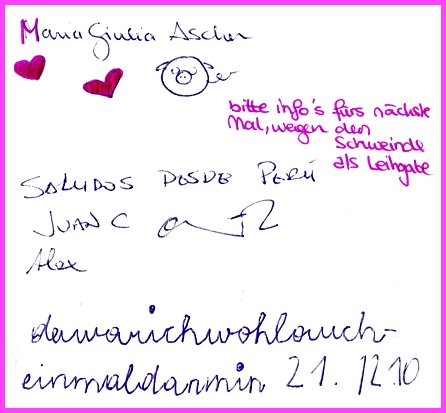 Maria Giulia Ascher
bitte info's fürs nächste
Mal, wegen den
Schweinde
als Leihgabe
SALUDOS DESDE PERÚ
JUAN C
Alex
dawarichwohlauch-
einmaldarmin 21. 12.10